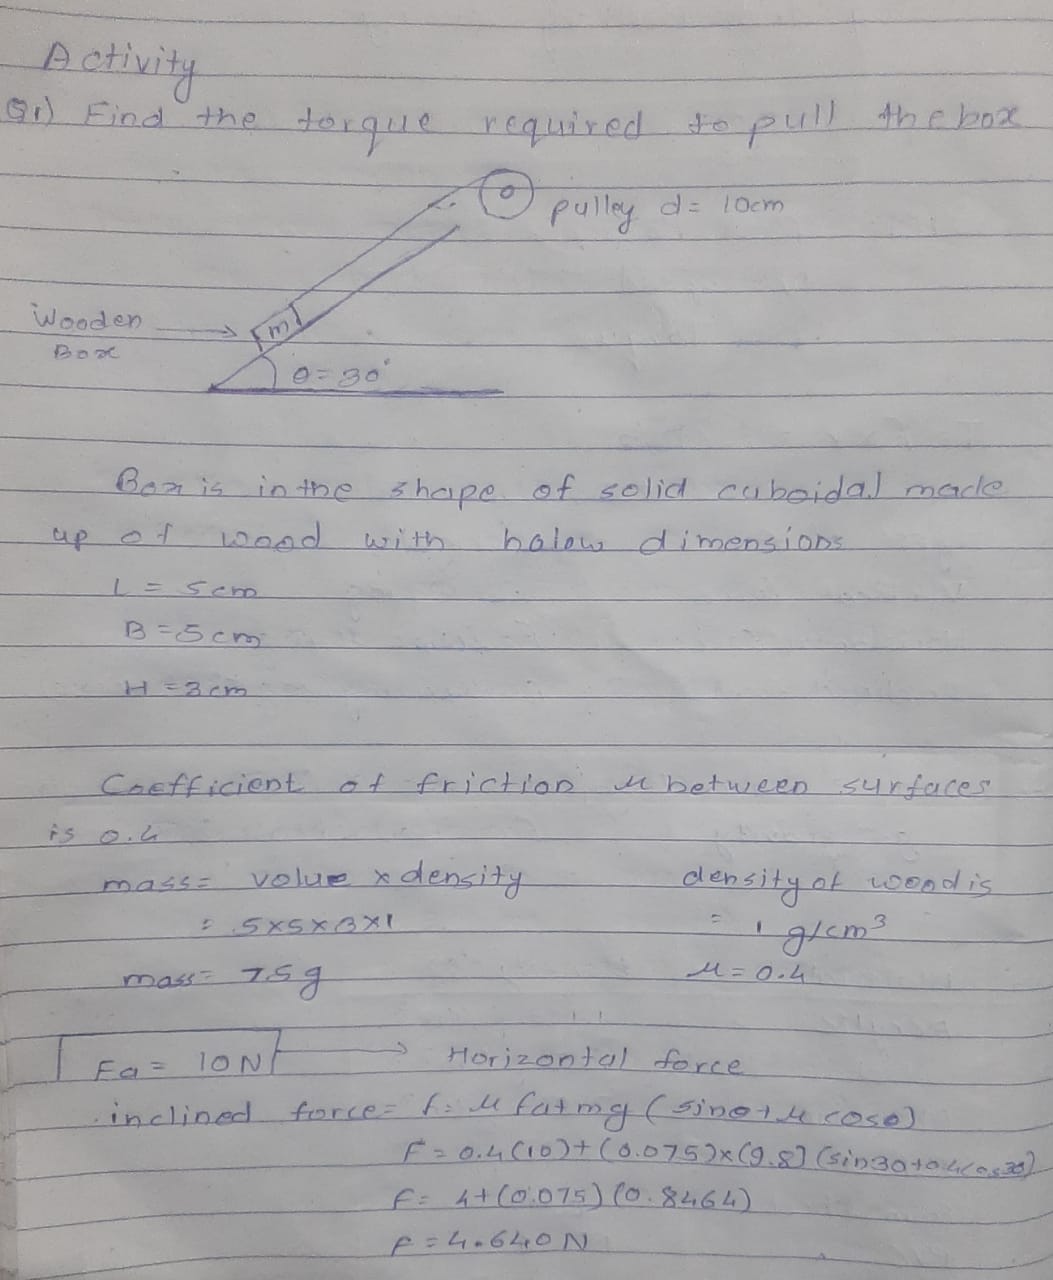 Activity
Q1) Find the torque required to pull the box
pulley d= 10cm
Wooden
Box
m
θ=30°
Box is in the shape of solid cuboidal made
up of wood with balow dimensions
L = 5cm
B = 5cm
H = 3cm
Coefficient of friction μ between surfaces
is 0.4
mass= volue x density
density of wood is
= 5x5x3x1
= 1 g/cm³
mass= 75g
μ=0.4
Fa= 10N
Horizontal force
inclined force= f= μ fa+mg (sinθ+μ cosθ)
F= 0.4(10)+(0.075)x(9.8)(sin30+0.4cos30)
F= 4+(0.075)(0.8464)
F=4.640N